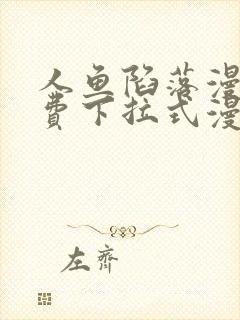 人鱼陷落漫
费下拉式漫
左齊